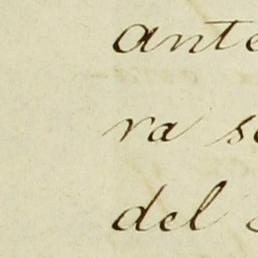 ante
ra s
del